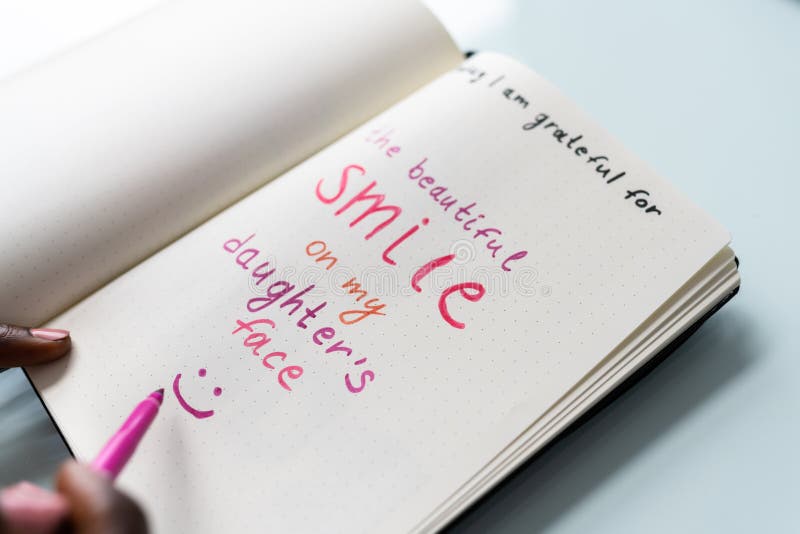 I am grateful for
the beautiful
smile
on my
daughter's
face
dreamstime